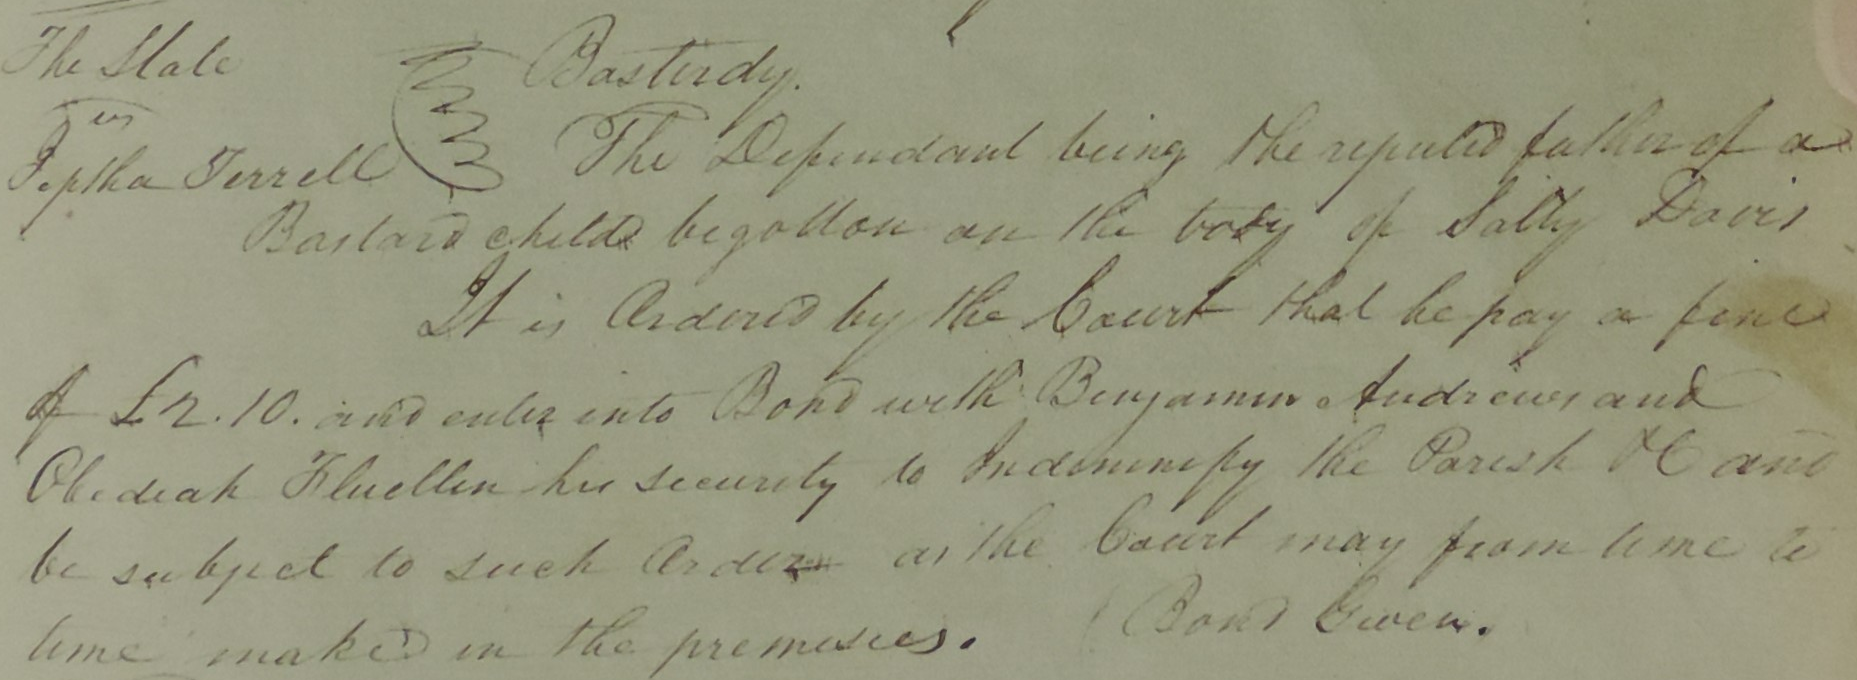 The State
vs
Jeptha Terrell
Basterdy.
The Defendant being the reputed father of a
Bastard child begotton on the body of Sally Davis
It is Ordered by the Court that he pay a fine
of £2.10. and enter into Bond with Benjamin Andrews and
Obediah Fluellen his security to Indemnify the Parish &C and
be subject to such Order as the Court may from time to
time make in the premises. Bond Given.